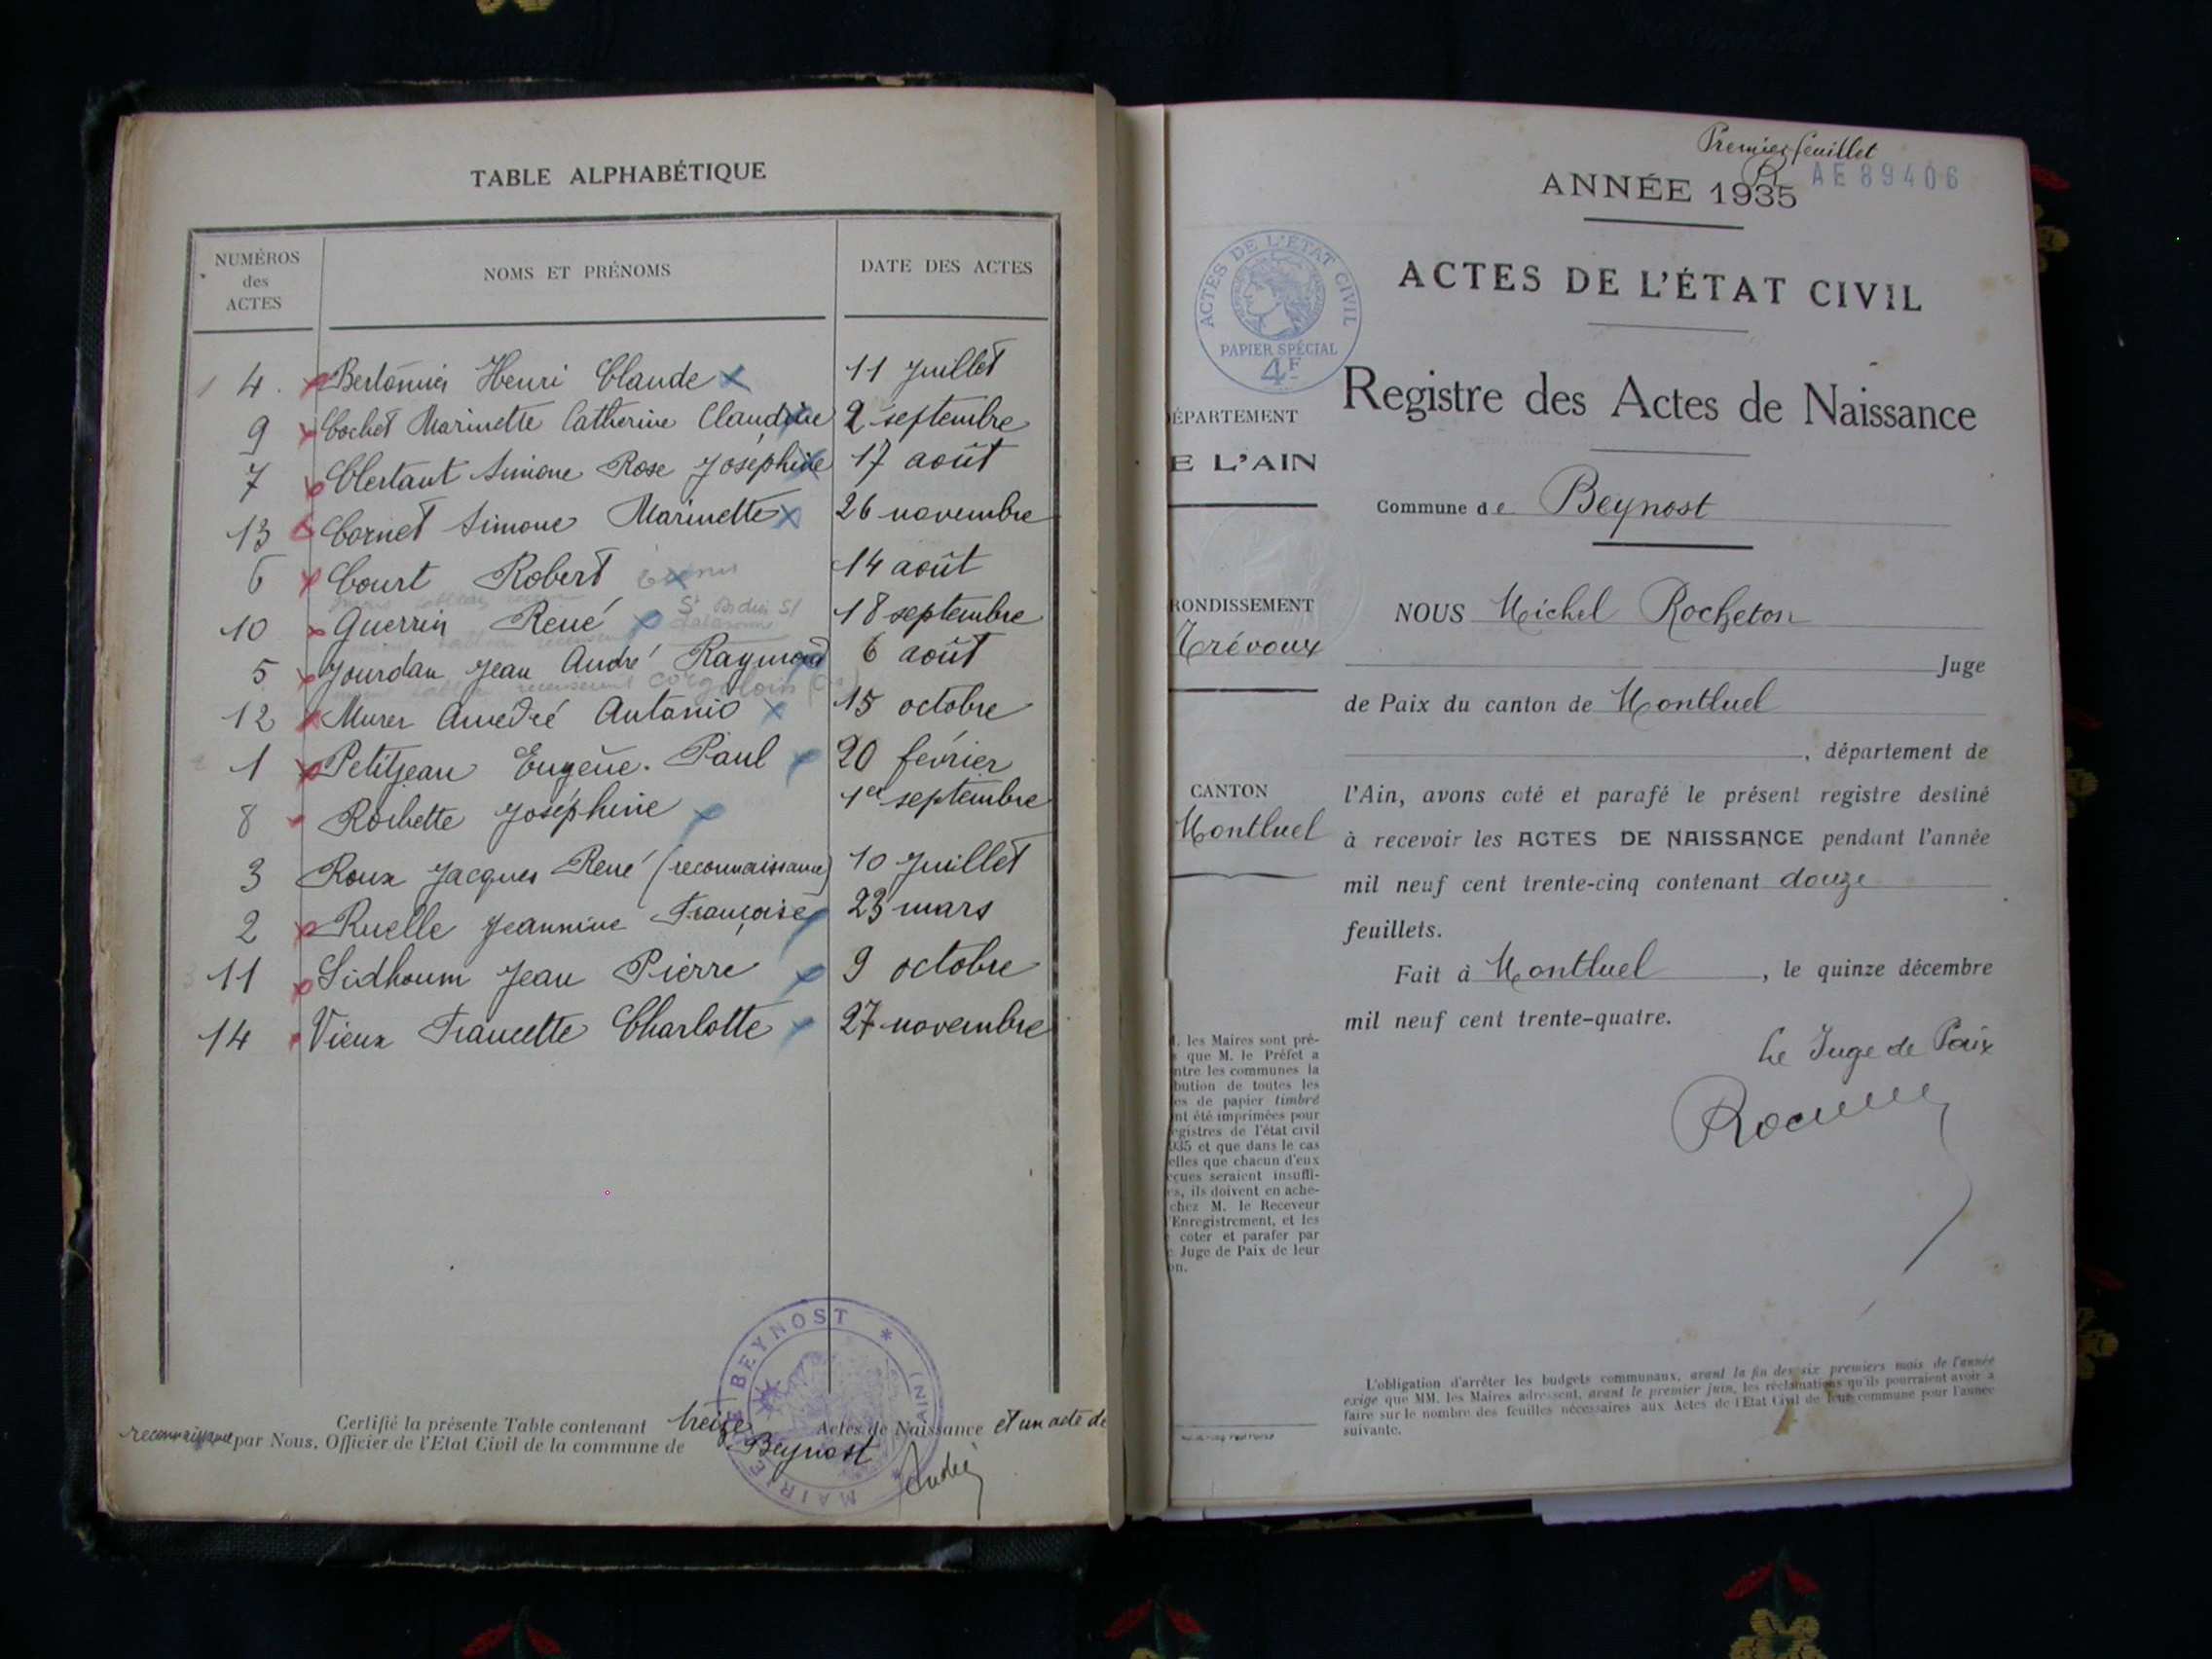 TABLE ALPHABÉTIQUE
NUMÉROS des ACTES
NOMS ET PRÉNOMS
DATE DES ACTES
4. Henri Claude 11 Juillet
9 Cochet Marinette Catherine Claudine 2 septembre
7 Clertant Simone Rose Joséphine 17 août
13 Cornet Simone Marinette 26 novembre
6 Court Robert 14 août
10 Guerrin René 18 septembre
5 Jourdan Jean André Raymond 6 août
12 Murer Amédée Antonio 15 octobre
1 Petitjean Eugène. Paul 20 février
8 Rochette Joséphine 1er septembre
3 Roux Jacques René (reconnaissance) 10 Juillet
2 Ruelle Jeannine Françoise 23 mars
11 Sidhoum Jean Pierre 9 octobre
14 Vieux Francette Charlotte 27 novembre
Certifié la présente Table contenant treize Actes de Naissance et un acte de
reconnaissance par Nous, Officier de l'Etat Civil de la commune de Beynost
MAIRIE DE BEYNOST * (AIN) *
Premier feuillet
ANNÉE 1935
AE 89406
ACTES DE L'ÉTAT CIVIL
PAPIER SPÉCIAL
4F
ACTES DE L'ÉTAT CIVIL
Registre des Actes de Naissance
Commune de Beynost
ÉPARTEMENT
E L'AIN
RONDISSEMENT
Trévoux
CANTON
Montluel
NOUS Michel Rocheton
Juge
de Paix du canton de Montluel
, département de
l'Ain, avons coté et parafé le présent registre destiné
à recevoir les ACTES DE NAISSANCE pendant l'année
mil neuf cent trente-cinq contenant douze
feuillets.
Fait à Montluel, le quinze décembre
mil neuf cent trente-quatre.
Le Juge de Paix
. les Maires sont pré-
que M. le Préfet a
ntre les communes la
bution de toutes les
es de papier timbré
nt été imprimées pour
egistres de l'état civil
935 et que dans le cas
elles que chacun d'eux
eçues seraient insuffi-
s, ils doivent en ache-
chez M. le Receveur
l'Enregistrement, et les
coter et parafer par
Juge de Paix de leur
on.
L'obligation d'arrêter les budgets communaux, avant la fin des six premiers mois de l'année
exige que MM. les Maires adressent, avant le premier juin, les réclamations qu'ils pourraient avoir à
faire sur le nombre des feuilles nécessaires aux Actes de l'Etat Civil de leur commune pour l'année
suivante.